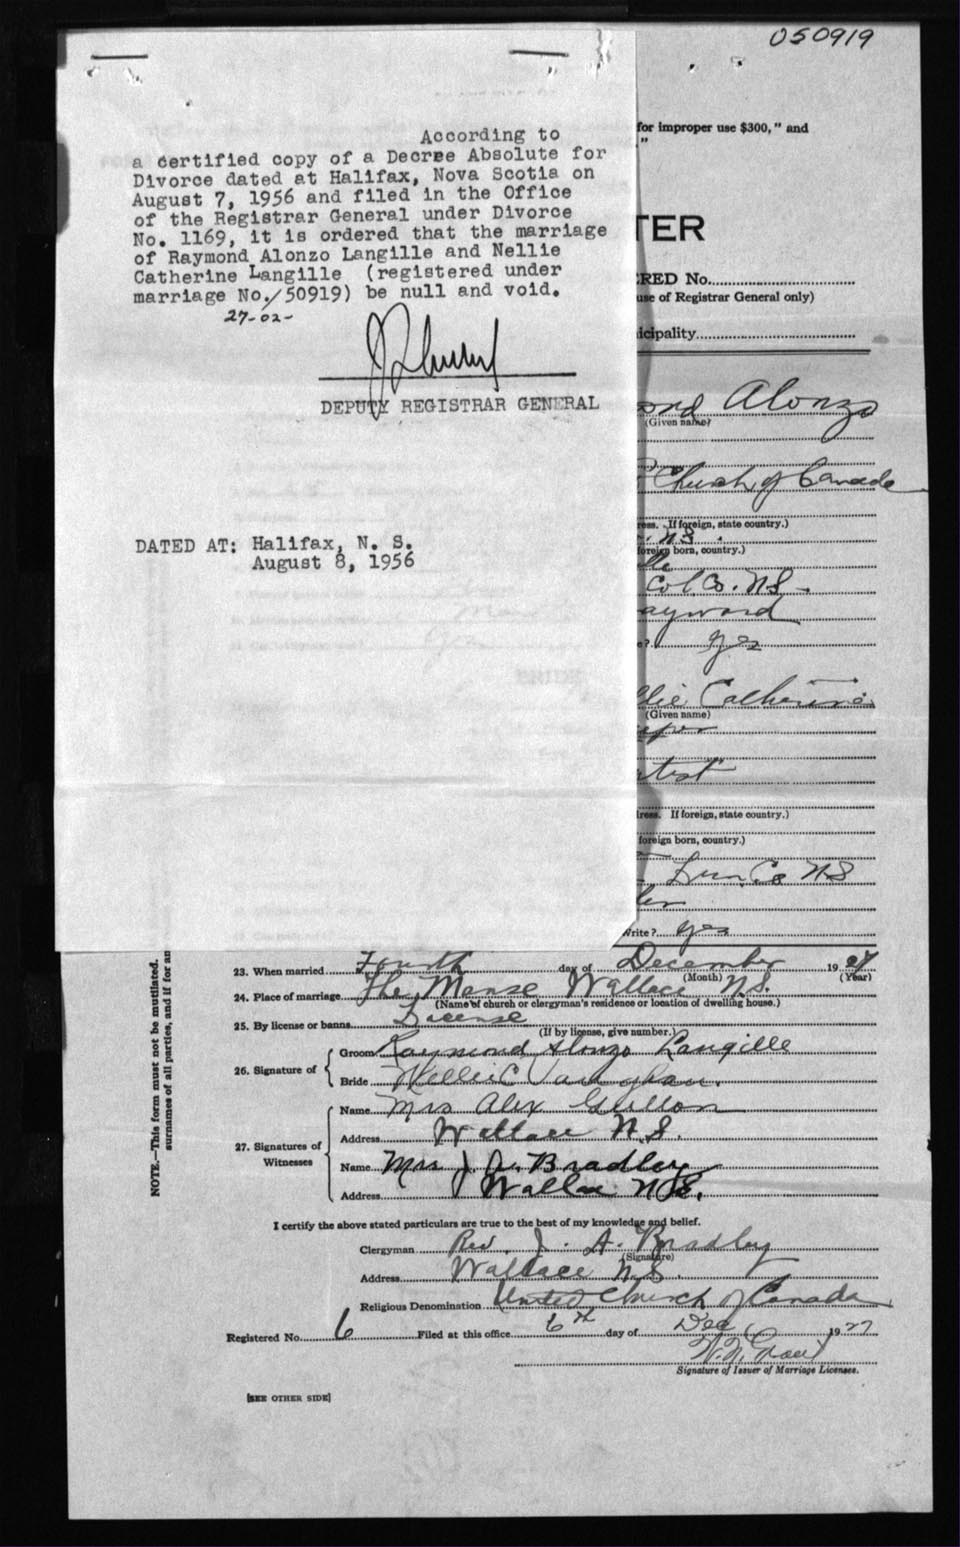 050919
According to
a certified copy of a Decree Absolute for
Divorce dated at Halifax, Nova Scotia on
August 7, 1956 and filed in the Office
of the Registrar General under Divorce
No. 1169, it is ordered that the marriage
of Raymond Alonzo Langille and Nellie
Catherine Langille (registered under
marriage No./50919) be null and void.
27-02-
DEPUTY REGISTRAR GENERAL
DATED AT: Halifax, N. S.
August 8, 1956
for improper use $300," and
"
TER
RED No.
use of Registrar General only)
icipality
ond Alonzo
(Given name)
Church of Canada
ress. If foreign, state country.)
N.S.
foreign born, country.)
lle
Col. Co. N.S.
ayward
e? yes
llie Catherine
(Given name)
eeper
tist
dress. If foreign, state country.)
foreign born, country.)
Lun. Co N S
ler
write? yes
BRIDE
NOTE.—This form must not be mutilated.
surnames of all parties, and if for an
23. When married Fourth day of December 1927
(Month) (Year)
24. Place of marriage The Manse Wallace N.S.
(Name of church or clergyman's residence or location of dwelling house.)
25. By license or banns License
(If by license, give number.)
26. Signature of
Groom Raymond Alonzo Langille
Bride Nellie C Vaughan.
27. Signatures of Witnesses
Name Mrs Alex
Address Wallace N.S.
Name Mrs J. A. Bradley
Address Wallace N.S.
I certify the above stated particulars are true to the best of my knowledge and belief.
Clergyman Rev. J. A. Bradley
(Signature)
Address Wallace N.S.
Religious Denomination United Church of Canada
Registered No. 6 Filed at this office 6th day of Dec 1927
W. N. Grant
Signature of Issuer of Marriage Licenses.
[SEE OTHER SIDE]